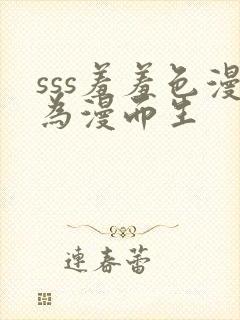 sss羞羞色漫
為漫而生
連春蕾